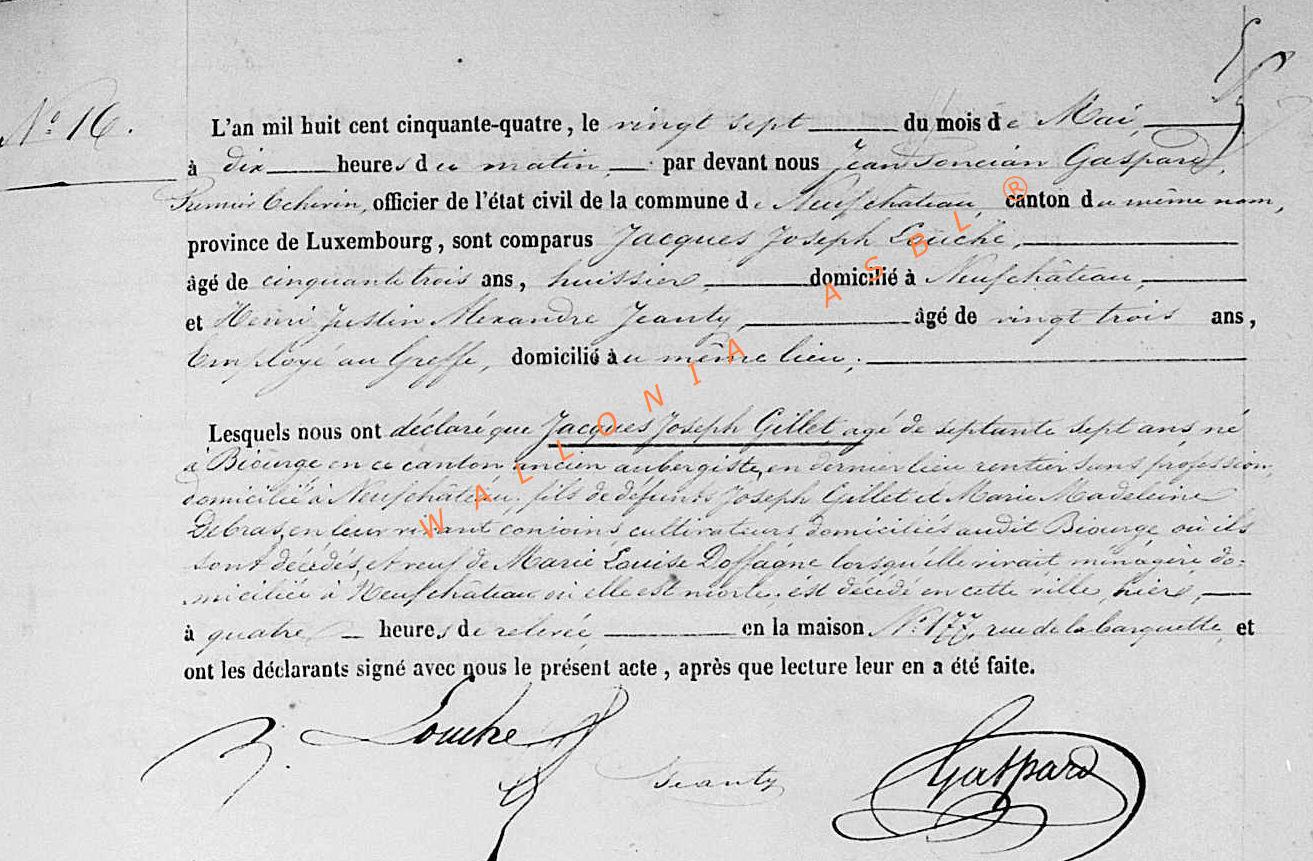 N° 16.
L'an mil huit cent cinquante-quatre, le vingt sept du mois de Mai,
à dix heures du matin, par devant nous Jean Gaspard,
Premier Echevin, officier de l'état civil de la commune de Neufchâteau, canton du même nom,
province de Luxembourg, sont comparus Jacques Joseph Louche,
âgé de cinquante trois ans, huissier, domicilié à Neufchâteau,
et Henri Justin Alexandre Jeanty, âgé de vingt trois ans,
Employé au Greffe, domicilié au même lieu;
Lesquels nous ont déclaré que Jacques Joseph Gillet, agé de septante sept ans, né
à Biourge en ce canton, ancien aubergiste, en dernier lieu rentier sans profession,
domicilié à Neufchâteau, fils de défunts Joseph Gillet et Marie Madeleine
Debras, en leur vivant conjoins cultivateurs domiciliés audit Biourge où ils
sont décédés, et veuf de Marie Louise Doffagne lorsqu'elle vivait ménagère do-
miciliée à Neufchâteau où elle est morte, est décédé en cette ville, hier,
à quatre heures de relevée, en la maison N° 177, rue de la Barquette, et
ont les déclarants signé avec nous le présent acte, après que lecture leur en a été faite.
Louche
Jeanty
Gaspard
WALLONIA ASBL ®